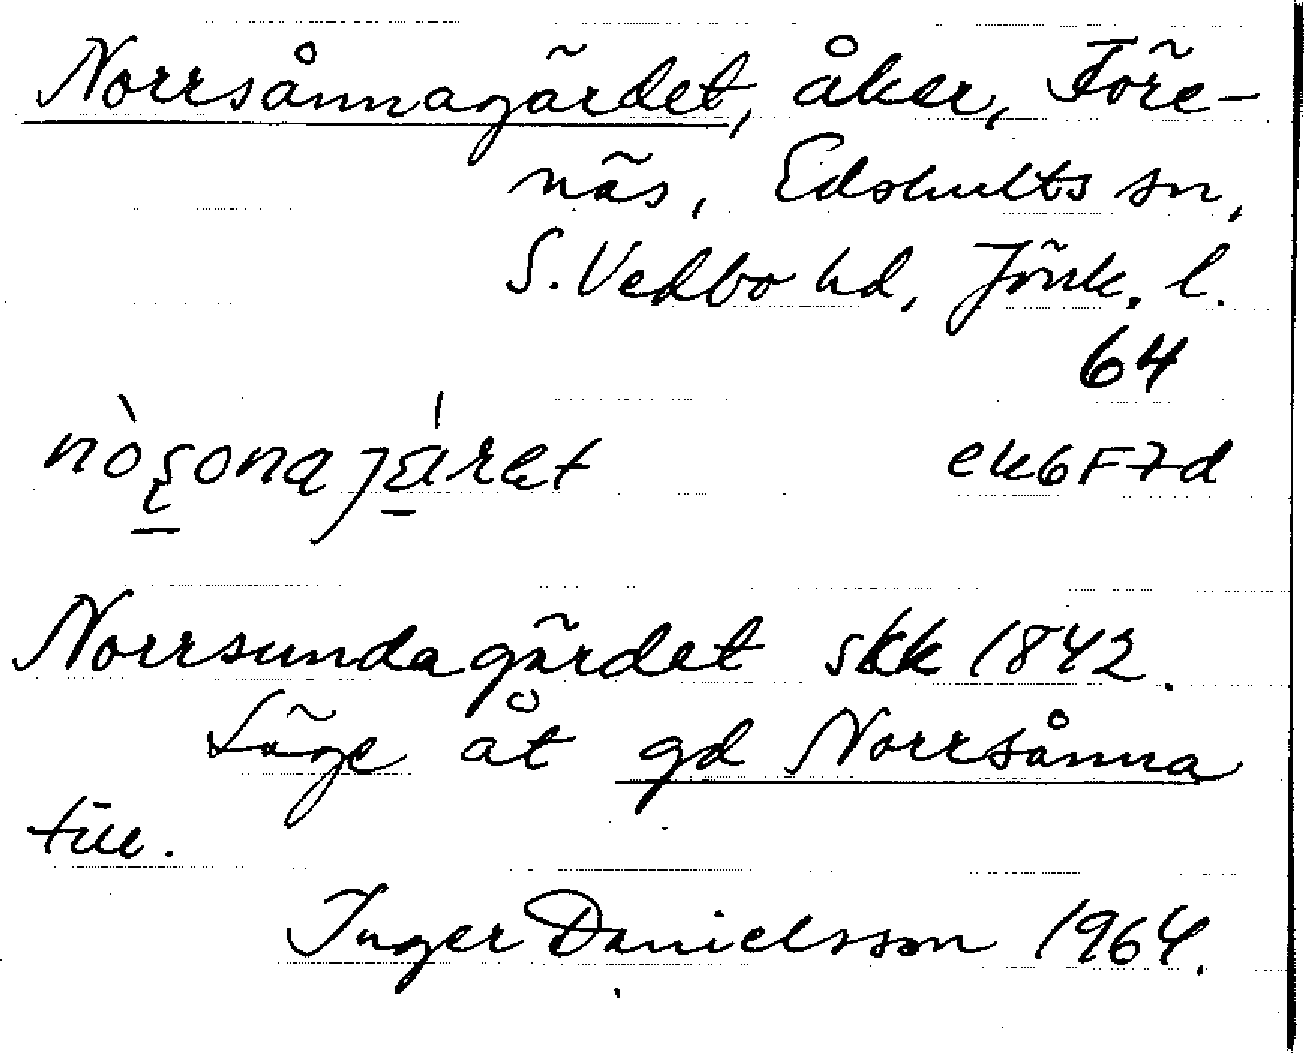 Norrsånnagärdet, åker, Före-
näs, Edshults sn,
S. Vedbo hd, Jönk. l.
64
ek6F7d
Norrsundagärdet skk 1842.
Läge åt gd Norrsånna
till.
Inger Danielsson 1964.